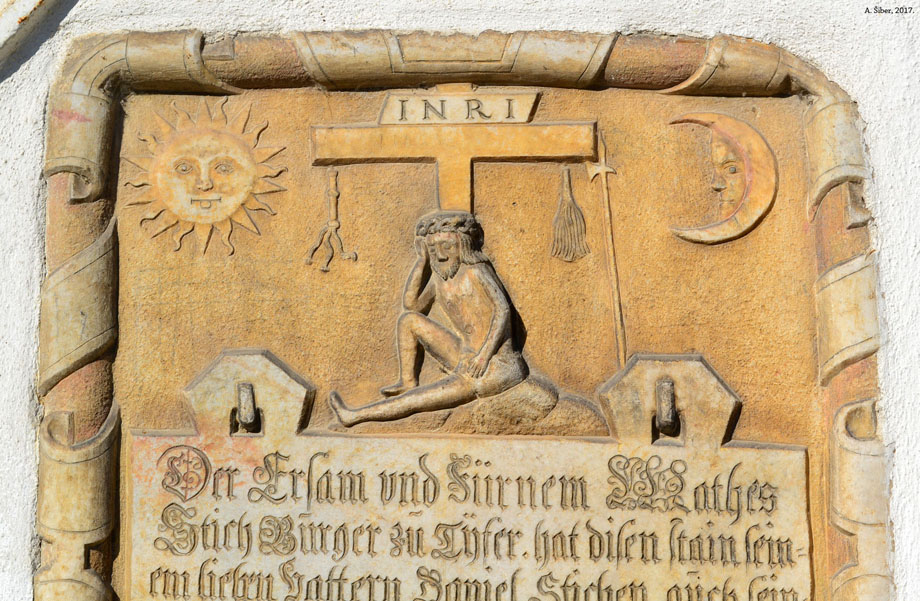 A. Šiber, 2017.
INRI
Der Ersam vnd Fürnem Mathes
Stich Burger zu Tyfer. hat disen stain sein=
em lieben Vattern Daniel Stichen auch sein